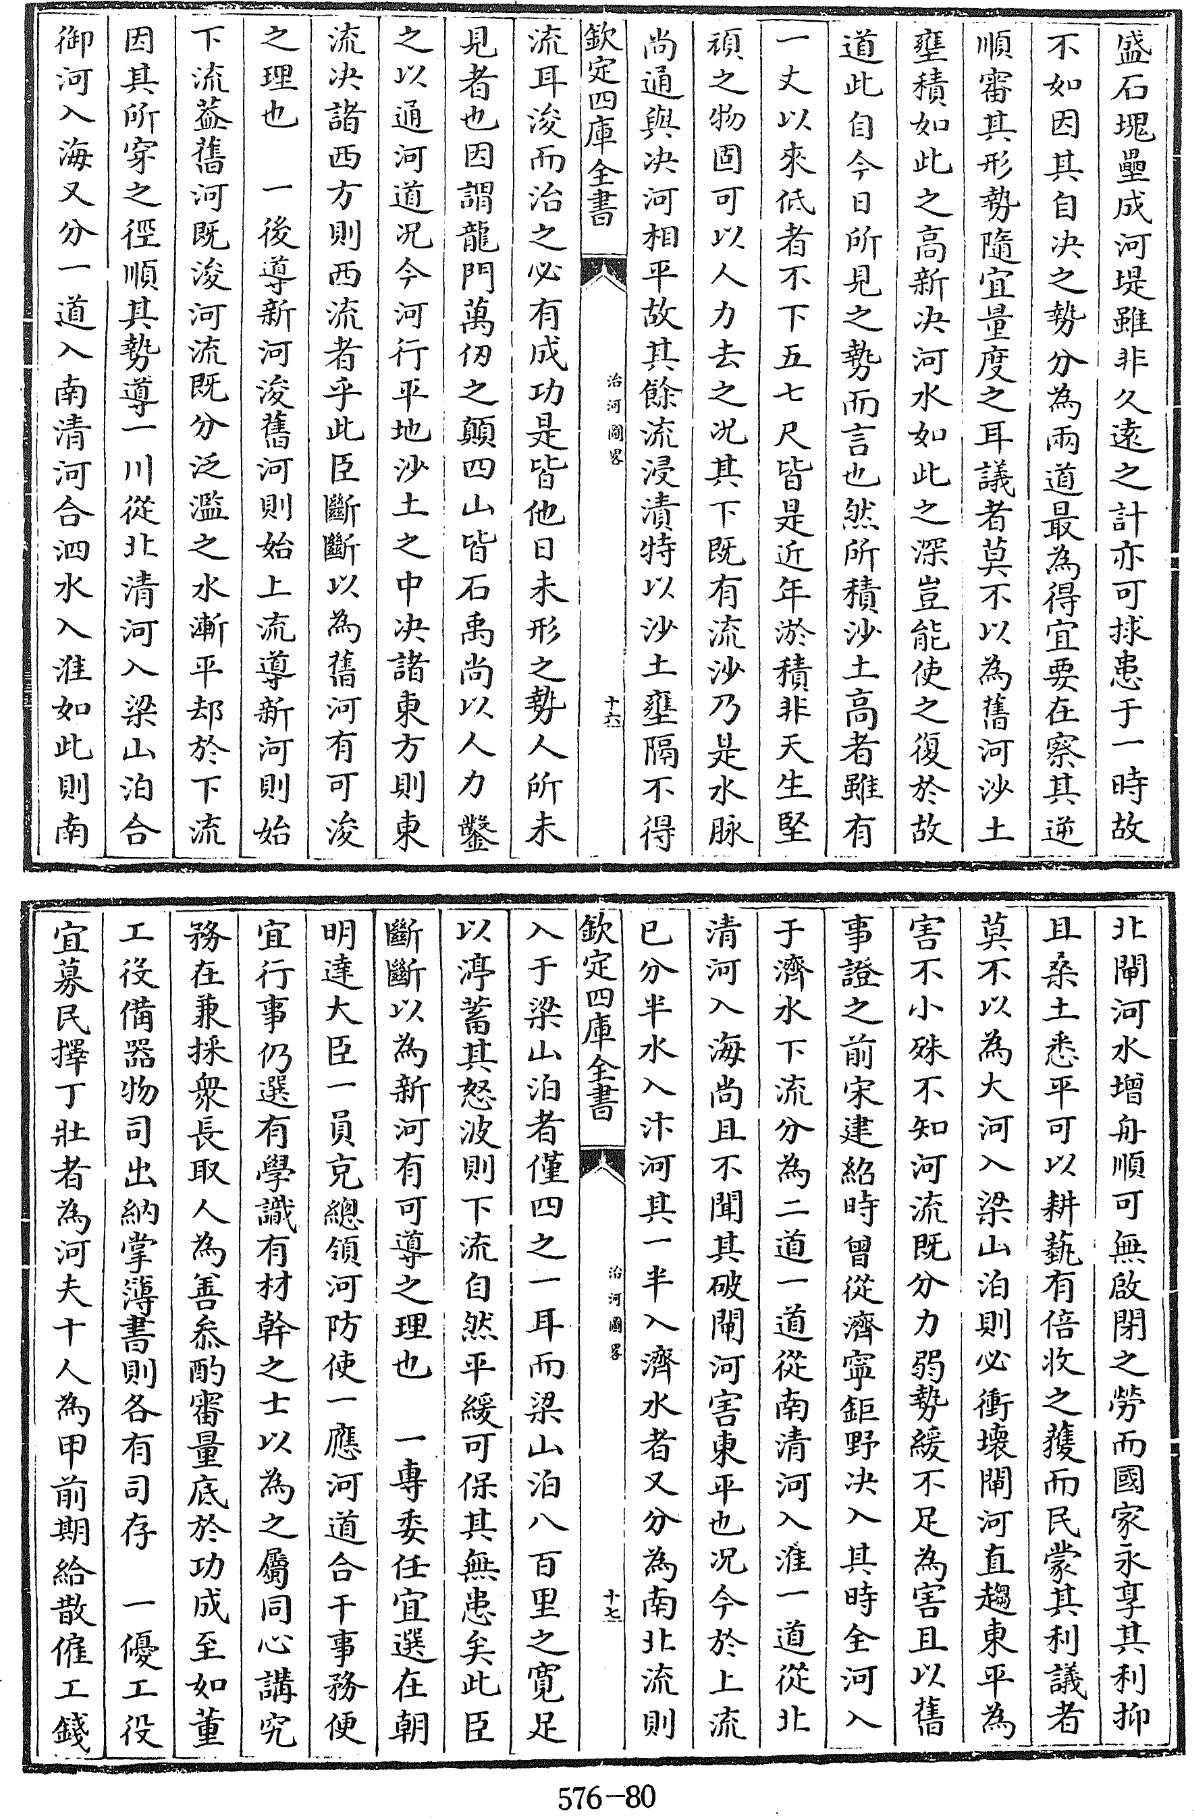 盛石塊壘成河堤雖非久遠之計亦可捄患于一時故
不如因其自決之勢分為兩道最為得宜要在察其逆
順審其形勢隨宜量度之耳議者莫不以為舊河沙土
壅積如此之高新决河水如此之深豈能使之復於故
道此自今日所見之勢而言也然所積沙土高者雖有
一丈以來低者不下五七尺皆是近年淤積非天生堅
頑之物固可以人力去之况其下既有流沙乃是水脉
尚通與决河相平故其餘流浸漬特以沙土壅隔不得
欽定四庫全書
治河圖畧
十六
流耳浚而治之必有成功是皆他日未形之勢人所未
見者也因謂龍門萬仞之顛四山皆石禹尚以人力鑿
之以通河道况今河行平地沙土之中决諸東方則東
流决諸西方則西流者乎此臣斷斷以為舊河有可浚
之理也　一後導新河浚舊河則始上流導新河則始
下流葢舊河既浚河流既分泛濫之水漸平却於下流
因其所穿之徑順其勢導一川從北清河入梁山泊合
御河入海又分一道入南清河合泗水入淮如此則南
北閘河水增舟順可無啟閉之勞而國家永享其利抑
且桑土悉平可以耕藝有倍收之獲而民蒙其利議者
莫不以為大河入梁山泊則必衝壊閘河直趨東平為
害不小殊不知河流既分力弱勢緩不足為害且以舊
事證之前宋建紹時曾從濟寧鉅野决入其時全河入
于濟水下流分為二道一道從南清河入淮一道從北
清河入海尚且不聞其破閘河害東平也况今於上流
已分半水入汴河其一半入濟水者又分為南北流則
欽定四庫全書
治河圖畧
十七
入于梁山泊者僅四之一耳而梁山泊八百里之寛足
以渟蓄其怒波則下流自然平緩可保其無患矣此臣
斷斷以為新河有可導之理也　一專委任宜選在朝
明達大臣一員充總領河防使一應河道合干事務便
宜行事仍選有學識有材幹之士以為之屬同心講究
務在兼採衆長取人為善叅酌審量底於功成至如董
工役備器物司出納掌薄書則各有司存　一優工役
宜募民擇丁壯者為河夫十人為甲前期給散僱工錢
576-80